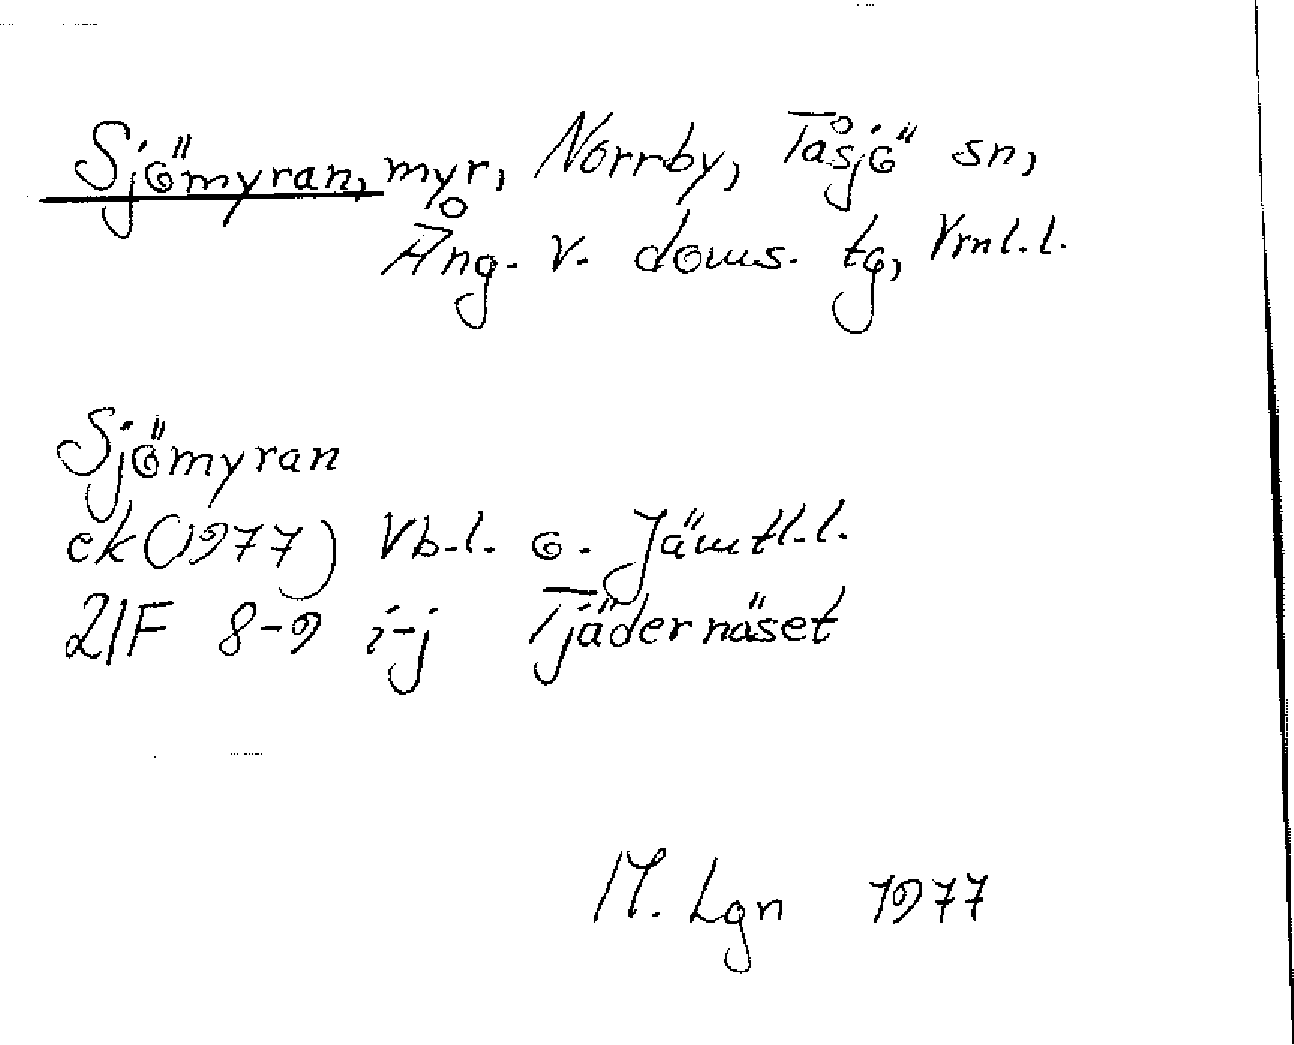 Sjömyran, myr, Norrby, Tåsjö sn,
Ång. v. doms. tg, Vrnl.l.
Sjömyran
ek (1977) Vb.l. o. Jämtl.l.
21F 8-9 i-j Tjädernäset
M. Lgn 1977